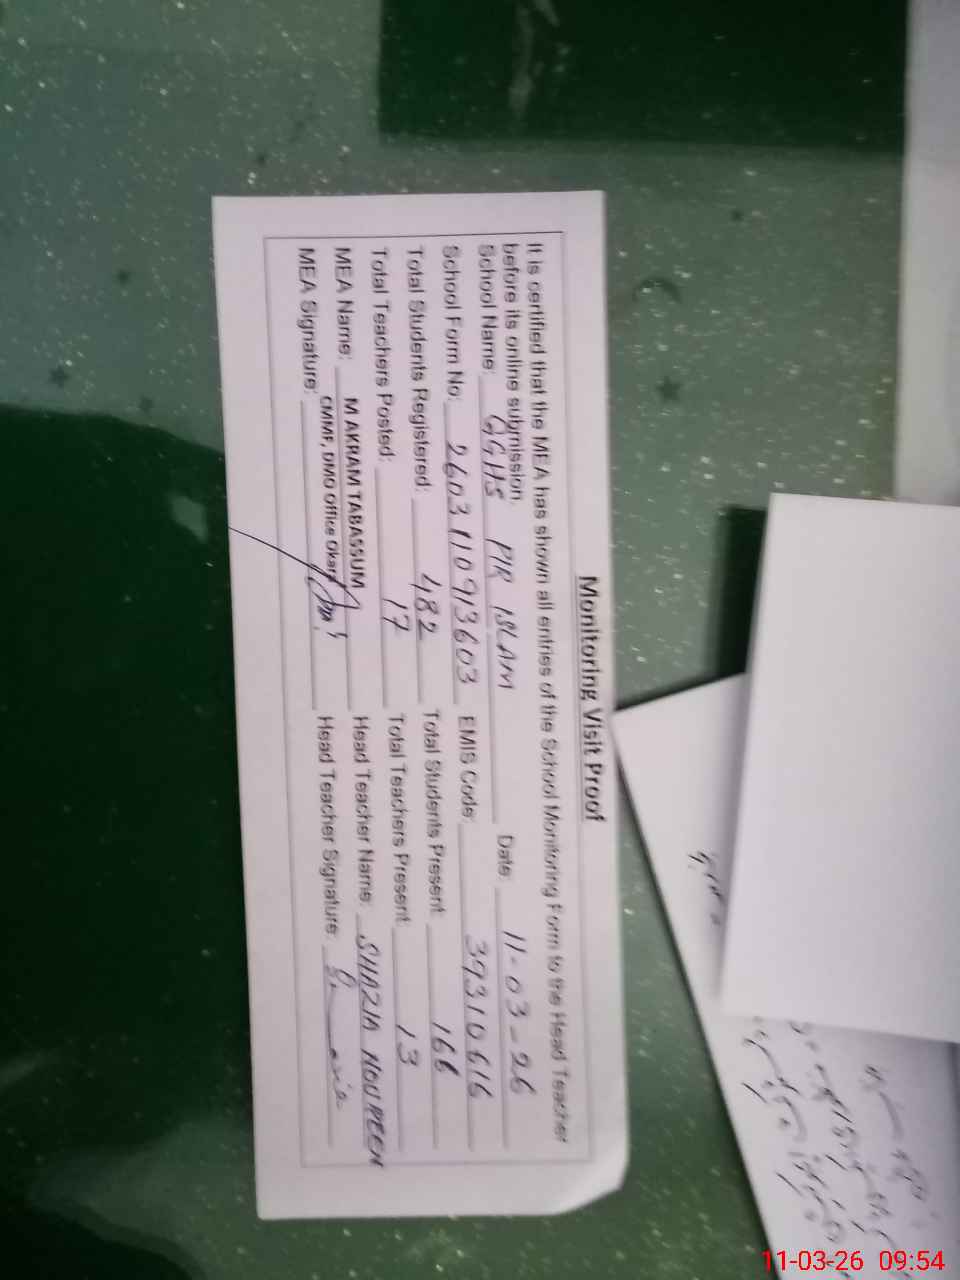 Monitoring Visit Proof
It is certified that the MEA has shown all entries of the School Monitoring Form to the Head Teacher
before its online submission.
School Name: GGHS PIR ISLAM Date: 11-03-26
School Form No: 2603110913603 EMIS Code: 39310616
Total Students Registered: 482 Total Students Present 166
Total Teachers Posted: 17 Total Teachers Present: 13
MEA Name: M AKRAM TABASSUM Head Teacher Name: SHAZIA NOUREEN
CMMF, DMO Office Okara
MEA Signature: Head Teacher Signature:
11-03-26 09:54